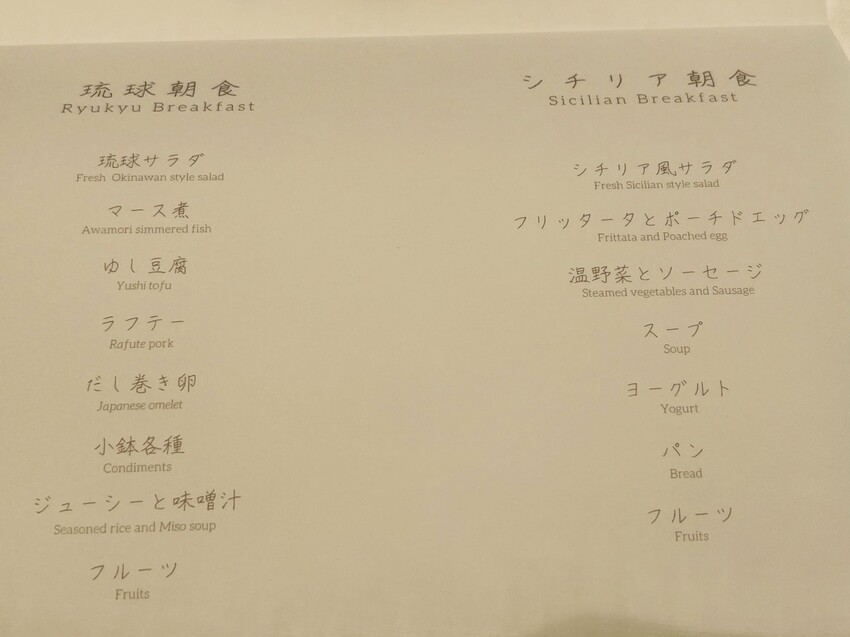 琉球朝食
Ryukyu Breakfast
琉球サラダ
Fresh Okinawan style salad
マース煮
Awamori simmered fish
ゆし豆腐
Yushi tofu
ラフテー
Rafute pork
だし巻き卵
Japanese omelet
小鉢各種
Condiments
ジューシーと味噌汁
Seasoned rice and Miso soup
フルーツ
Fruits
シチリア朝食
Sicilian Breakfast
シチリア風サラダ
Fresh Sicilian style salad
フリッタータとポーチドエッグ
Frittata and Poached egg
温野菜とソーセージ
Steamed vegetables and Sausage
スープ
Soup
ヨーグルト
Yogurt
パン
Bread
フルーツ
Fruits